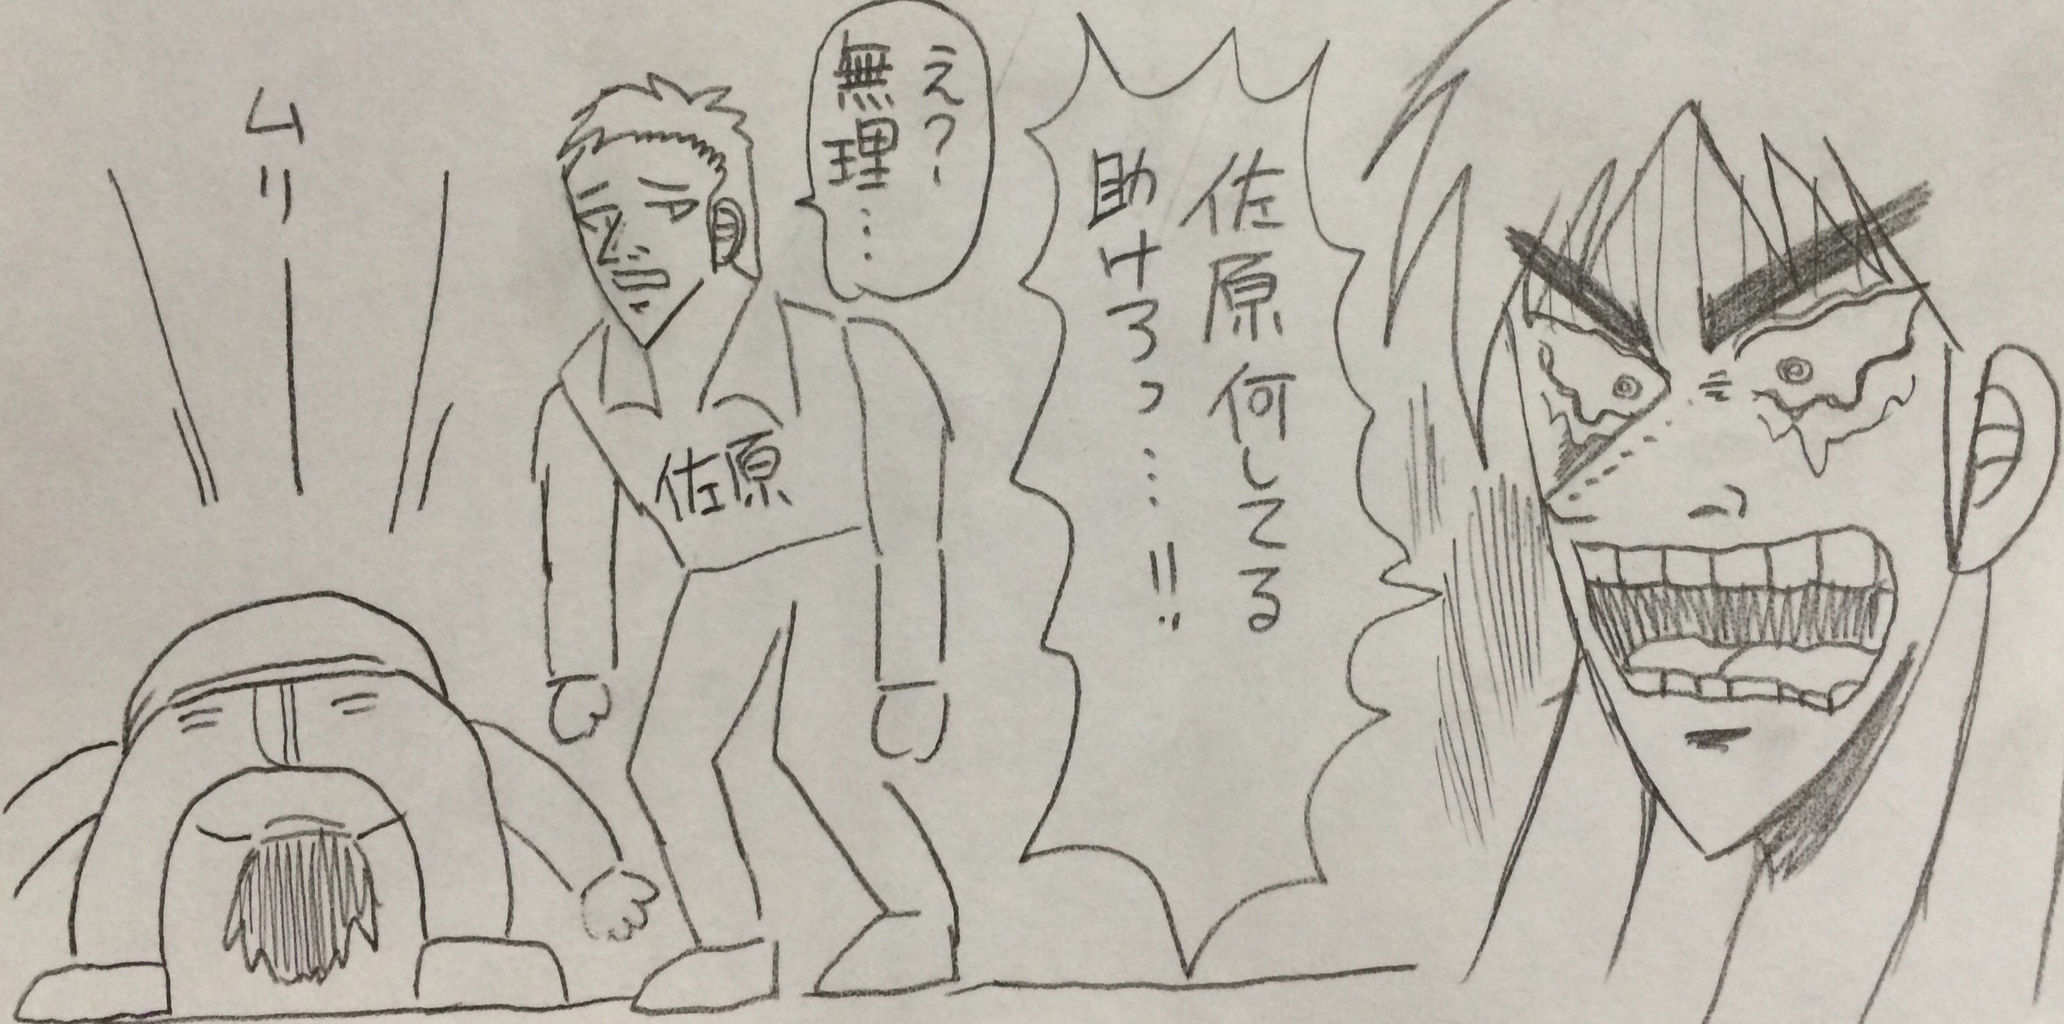 佐原何してる
助けろっ…!!
え?
無理…
佐原
ムリ